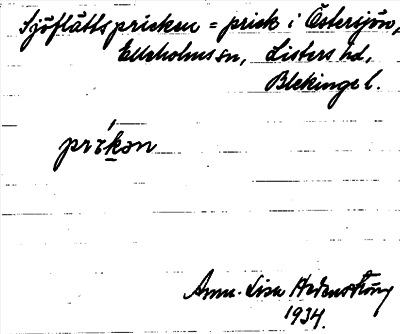 Sjöflättspricken = prick i Östersjön,
Elleholms sn, Listers hd,
Blekinge l.
prìkən
Anna-Lisa Hedenström
1934.